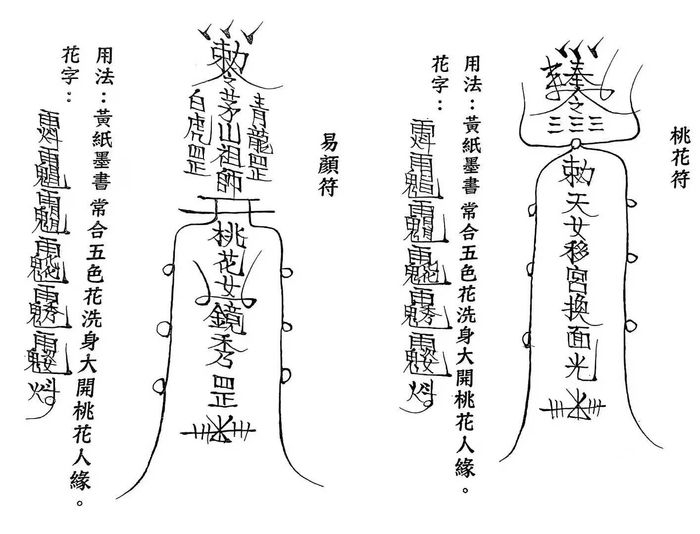 桃花符
奉令
三三三
勅天女移宮換面光
用法：黃紙墨書常合五色花洗身大開桃花人緣。
花字：
易顏符
青龍罡
勅令茅山祖師
白虎罡
桃花女鏡秀罡
用法：黃紙墨書常合五色花洗身大開桃花人緣。
花字：